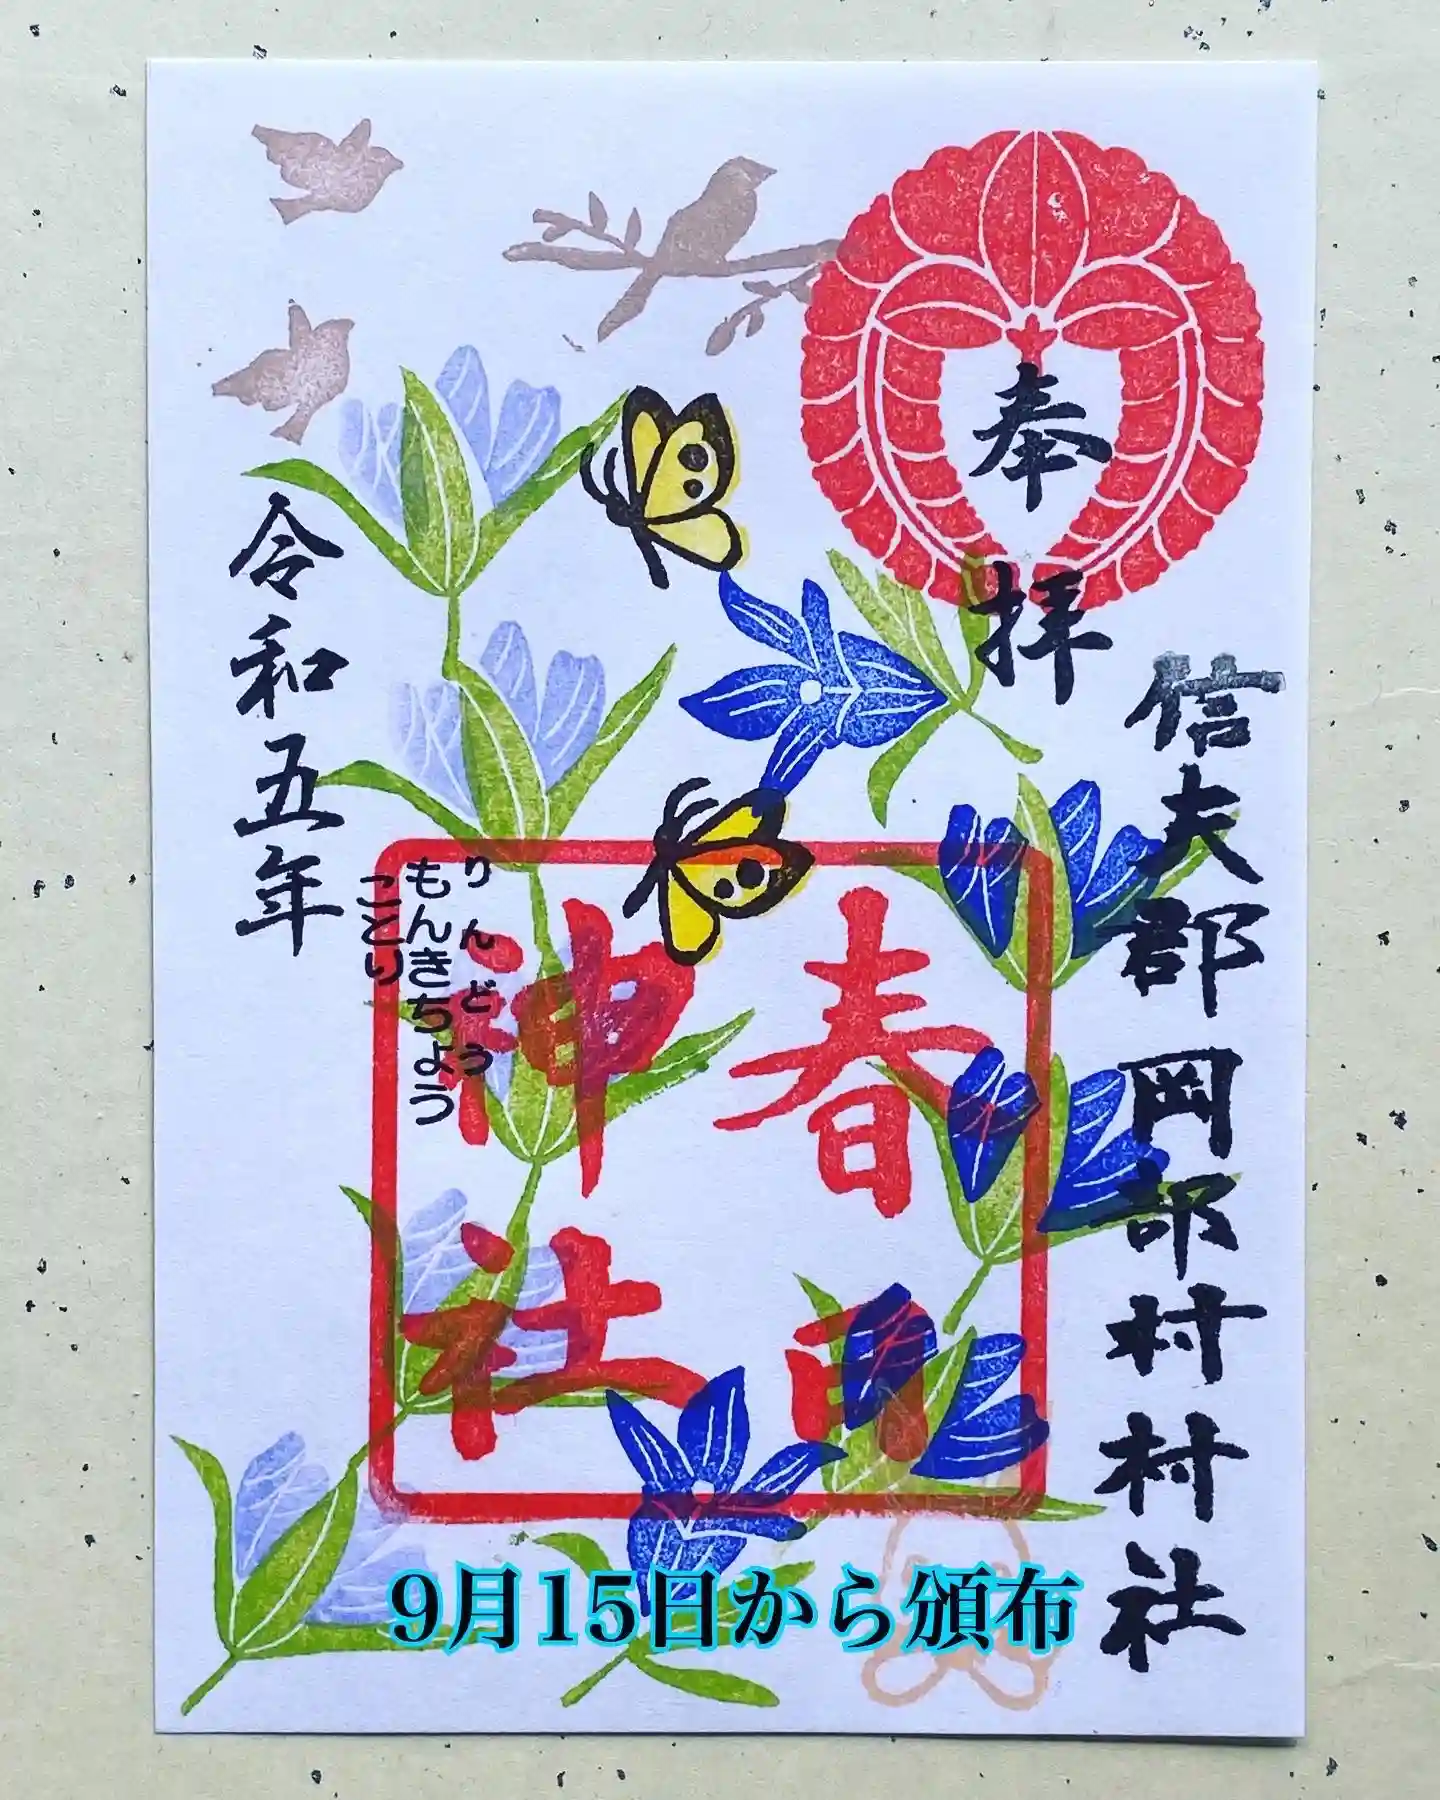 奉拝
信夫郡岡部村村社
春日
神社
りんどう
もんきちょう
ことり
令和五年
9月15日から頒布